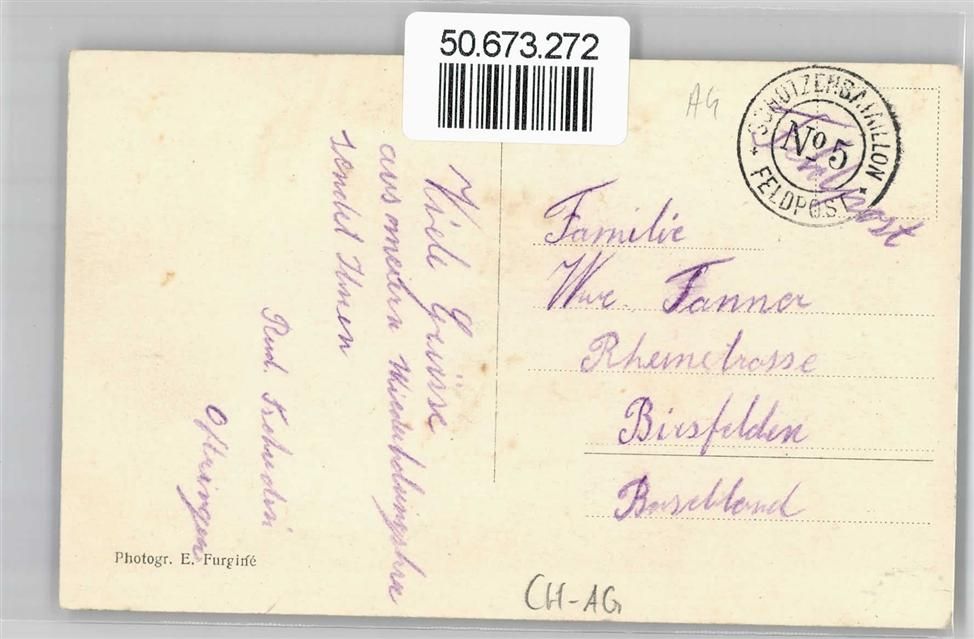 50.673.272
AG
SCHÜTZENBATAILLON
No 5
FELDPOST
Feldpost
Viele Grüsse
aus meinem Wiederholungskurs
sendet Ihnen
Rud.
Oftringen
Familie
Wwe. Tanner
Rheinstrasse
Birsfelden
Baselland
Photogr. E. Furginé
CH-AG